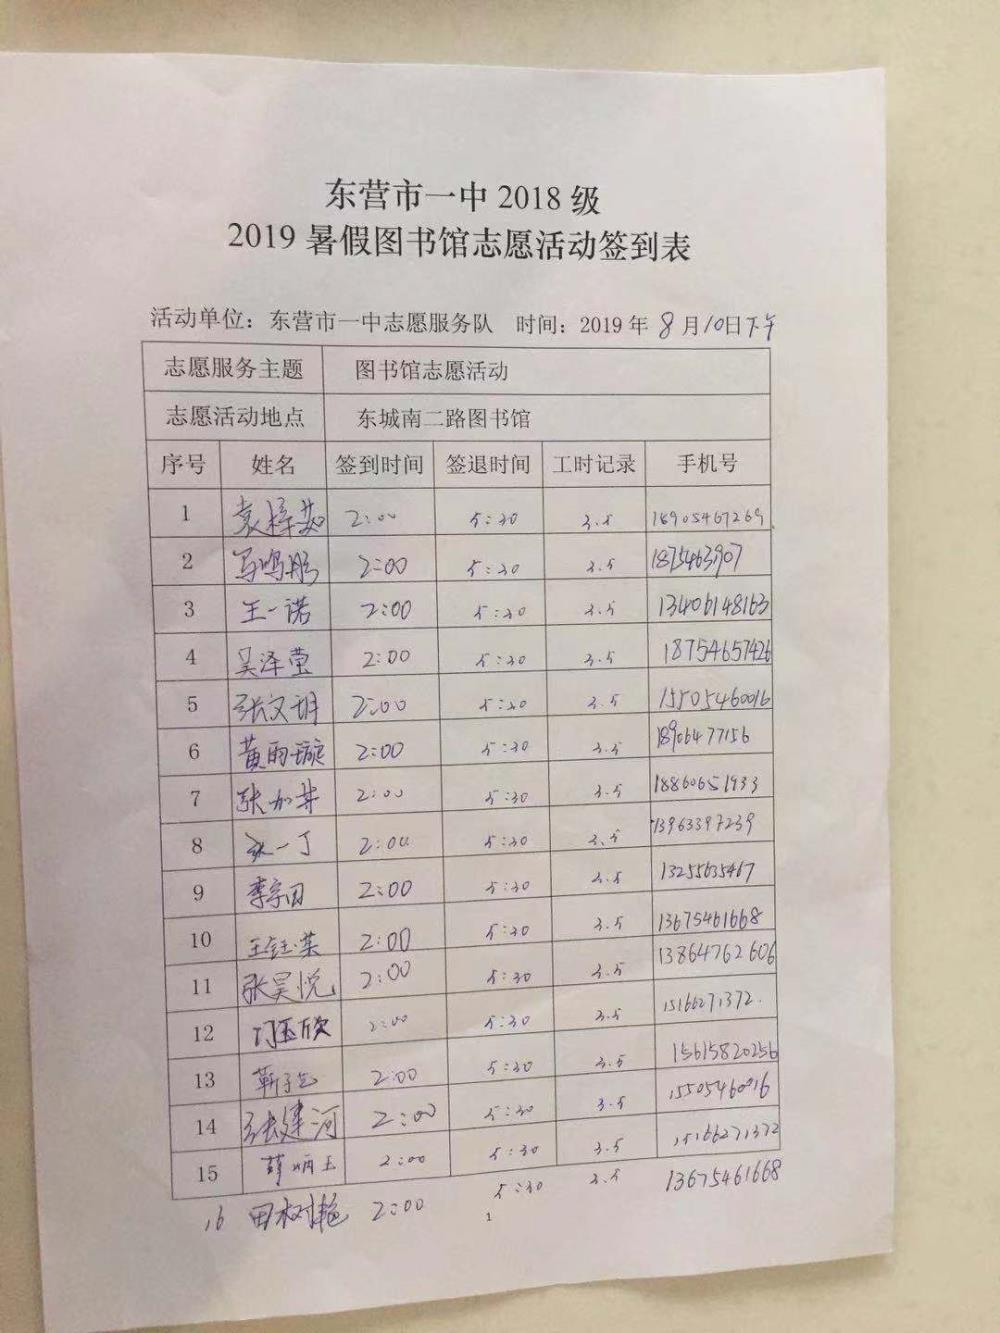 东营市一中 2018 级
2019 暑假图书馆志愿活动签到表
活动单位：东营市一中志愿服务队 时间：2019 年 8 月 10日下午
志愿服务主题 图书馆志愿活动
志愿活动地点 东城南二路图书馆
序号 姓名 签到时间 签退时间 工时记录 手机号
1 2:00 5:30 3.5 18905467269
2 马鸣彤 2:00 5:30 3.5 1875463907
3 王一诺 2:00 5:30 3.5 13406148163
4 吴泽莹 2:00 5:30 3.5 18754657426
5 张文玥 2:00 5:30 3.5 15505460016
6 黄雨璇 2:00 5:30 3.5 18906477156
7 张如井 2:00 5:30 3.5 18860651933
8 2:00 5:30 3.5 13963397239
9 李宗因 2:00 5:30 3.5 13255635467
10 王钰荣 2:00 5:30 3.5 13675461668
11 张昊悦 2:00 5:30 3.5 13864762606
12 门玉欣 2:00 5:30 3.5 15166271372.
13 2:00 5:30 3.5 15615820256
14 张建河 2:00 5:30 3.5 15505460016
15 薛炳玉 2:00 5:30 3.5 15166271372
16 田树艳 2:00 5:30 3.5 13675461668
1